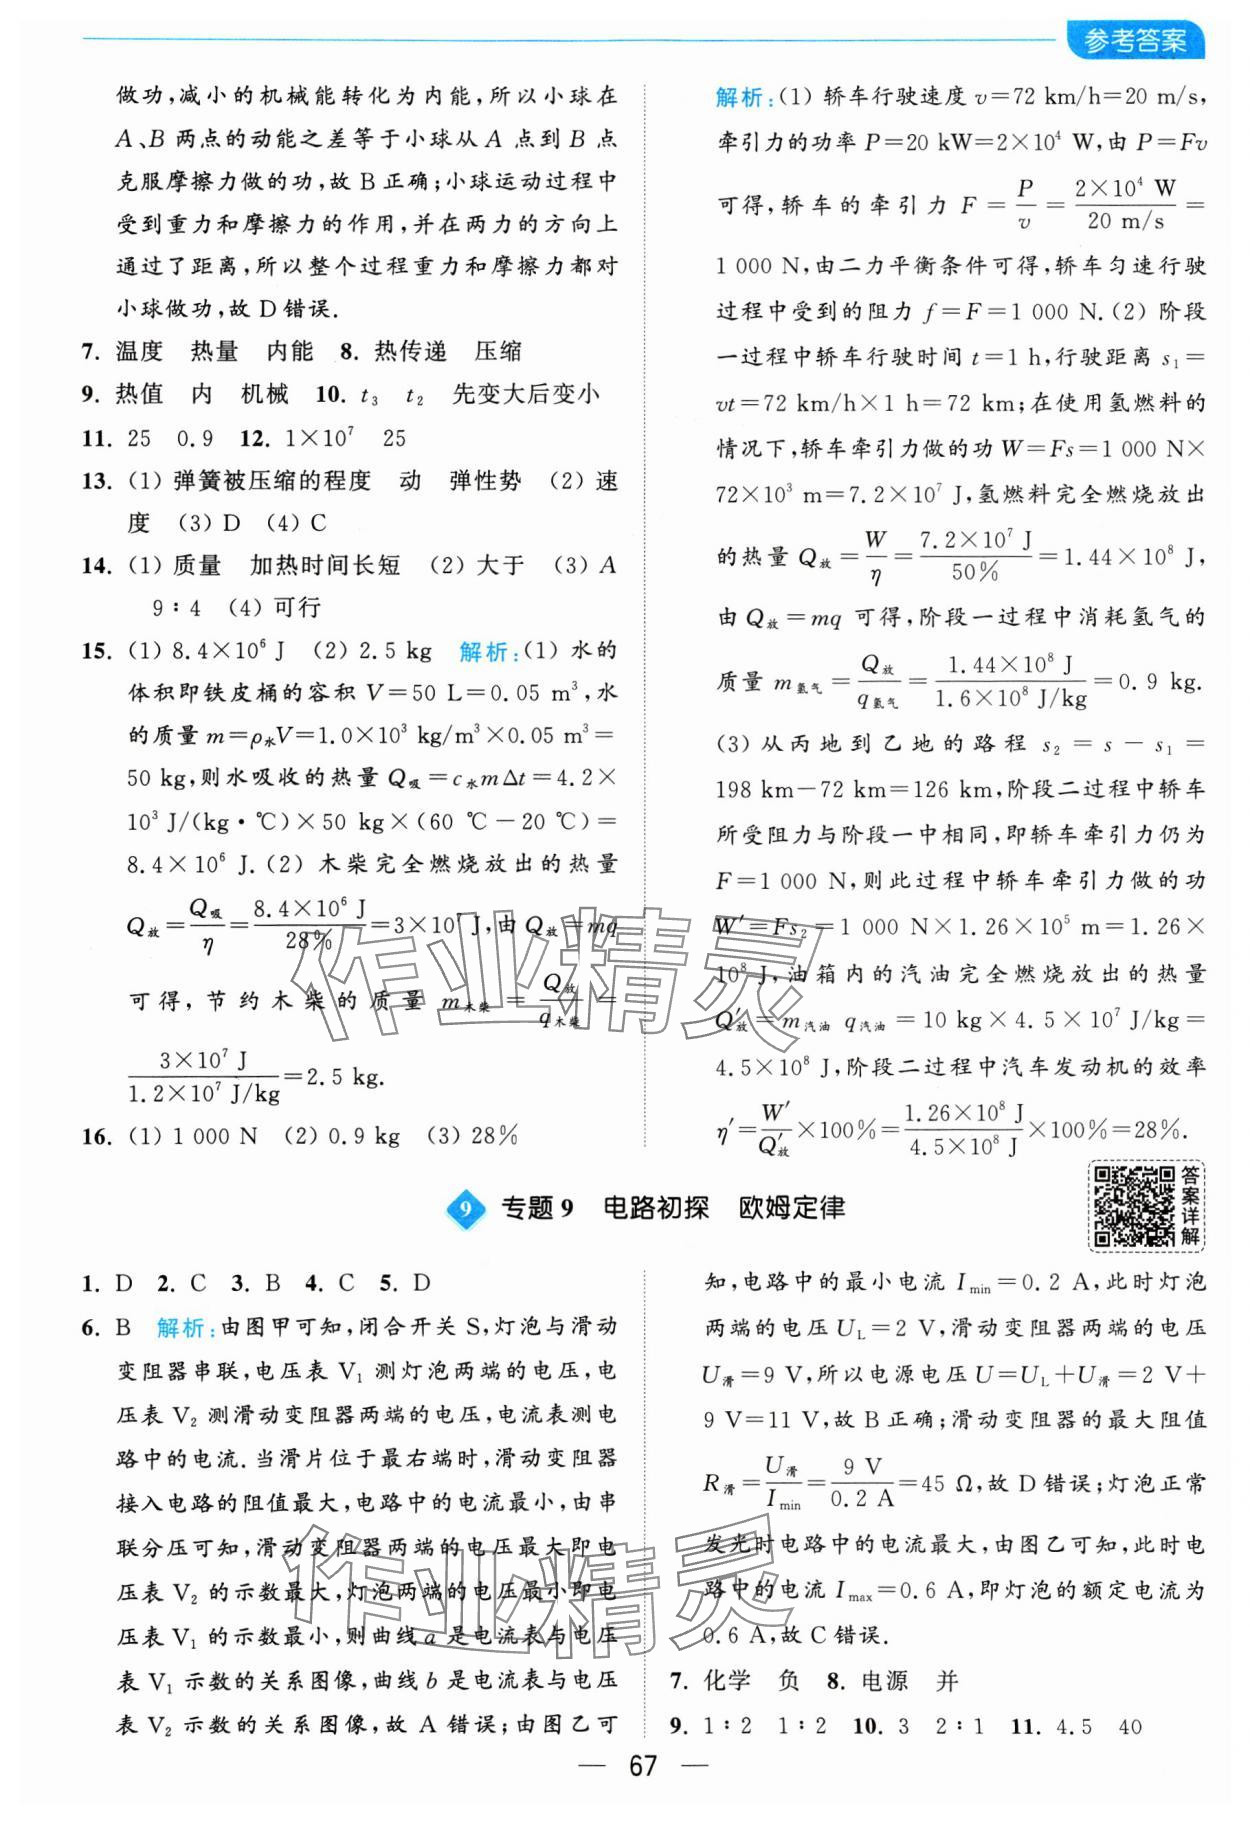 参考答案
做功,减小的机械能转化为内能,所以小球在
A、B 两点的动能之差等于小球从 A 点到 B 点
克服摩擦力做的功,故 B 正确;小球运动过程中
受到重力和摩擦力的作用,并在两力的方向上
通过了距离,所以整个过程重力和摩擦力都对
小球做功,故 D 错误.
7. 温度 热量 内能 8. 热传递 压缩
9. 热值 内 机械 10. t₃ t₂ 先变大后变小
11. 25 0.9 12. 1×10⁷ 25
13. (1) 弹簧被压缩的程度 动 弹性势 (2) 速
度 (3) D (4) C
14. (1) 质量 加热时间长短 (2) 大于 (3) A
9∶4 (4) 可行
15. (1) 8.4×10⁶ J (2) 2.5 kg 解析:(1) 水的
体积即铁皮桶的容积 V=50 L=0.05 m³,水
的质量 m=ρ水V=1.0×10³ kg/m³×0.05 m³=
50 kg,则水吸收的热量 Q吸=c水mΔt=4.2×
10³ J/(kg·℃)×50 kg×(60 ℃-20 ℃)=
8.4×10⁶ J.(2) 木柴完全燃烧放出的热量
Q放=Q吸/η=8.4×10⁶ J/28%=3×10⁷ J,由 Q放=mq
可得,节约木柴的质量 m木柴=Q放/q木柴=
3×10⁷ J/1.2×10⁷ J/kg=2.5 kg.
16. (1) 1 000 N (2) 0.9 kg (3) 28%
解析:(1) 轿车行驶速度 v=72 km/h=20 m/s,
牵引力的功率 P=20 kW=2×10⁴ W,由 P=Fv
可得,轿车的牵引力 F=P/v=2×10⁴ W/20 m/s=
1 000 N,由二力平衡条件可得,轿车匀速行驶
过程中受到的阻力 f=F=1 000 N.(2) 阶段
一过程中轿车行驶时间 t=1 h,行驶距离 s₁=
vt=72 km/h×1 h=72 km;在使用氢燃料的
情况下,轿车牵引力做的功 W=Fs=1 000 N×
72×10³ m=7.2×10⁷ J,氢燃料完全燃烧放出
的热量 Q放=W/η=7.2×10⁷ J/50%=1.44×10⁸ J,
由 Q放=mq 可得,阶段一过程中消耗氢气的
质量 m氢气=Q放/q氢气=1.44×10⁸ J/1.6×10⁸ J/kg=0.9 kg.
(3) 从丙地到乙地的路程 s₂=s-s₁=
198 km-72 km=126 km,阶段二过程中轿车
所受阻力与阶段一中相同,即轿车牵引力仍为
F=1 000 N,则此过程中轿车牵引力做的功
W′=Fs₂=1 000 N×1.26×10⁵ m=1.26×
10⁸ J,油箱内的汽油完全燃烧放出的热量
Q′放=m汽油 q汽油=10 kg×4.5×10⁷ J/kg=
4.5×10⁸ J,阶段二过程中汽车发动机的效率
η′=W′/Q′放×100%=1.26×10⁸ J/4.5×10⁸ J×100%=28%.
9 专题 9 电路初探 欧姆定律
答案详解
1. D 2. C 3. B 4. C 5. D
6. B 解析:由图甲可知,闭合开关 S,灯泡与滑动
变阻器串联,电压表 V₁ 测灯泡两端的电压,电
压表 V₂ 测滑动变阻器两端的电压,电流表测电
路中的电流.当滑片位于最右端时,滑动变阻器
接入电路的阻值最大,电路中的电流最小,由串
联分压可知,滑动变阻器两端的电压最大即电
压表 V₂ 的示数最大,灯泡两端的电压最小即电
压表 V₁ 的示数最小,则曲线 a 是电流表与电压
表 V₁ 示数的关系图像,曲线 b 是电流表与电压
表 V₂ 示数的关系图像,故 A 错误;由图乙可
知,电路中的最小电流 Imin=0.2 A,此时灯泡
两端的电压 UL=2 V,滑动变阻器两端的电压
U滑=9 V,所以电源电压 U=UL+U滑=2 V+
9 V=11 V,故 B 正确;滑动变阻器的最大阻值
R滑=U滑/Imin=9 V/0.2 A=45 Ω,故 D 错误;灯泡正常
发光时电路中的电流最大,由图乙可知,此时电
路中的电流 Imax=0.6 A,即灯泡的额定电流为
0.6 A,故 C 错误.
7. 化学 负 8. 电源 并
9. 1∶2 1∶2 10. 3 2∶1 11. 4.5 40
— 67 —
作业精灵
作业精灵